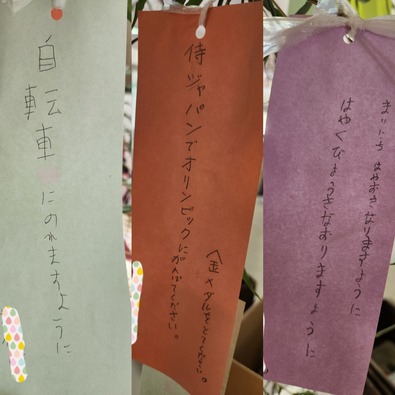 自転車にのれますように
侍ジャパンでオリンピックに
がんばてください。
金メダルをとてください。
まいにち はやおきなりますように
はやくびょうきなおりますように